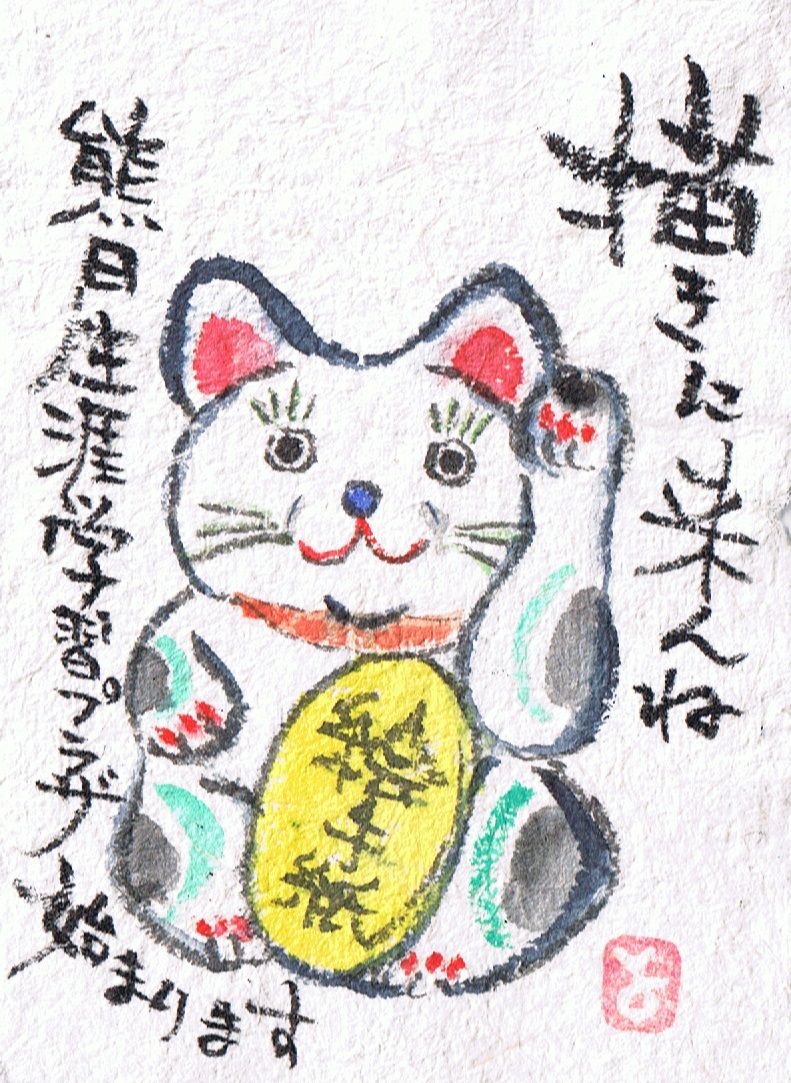 描きに来んね
熊日生涯学習プラザ
始まります